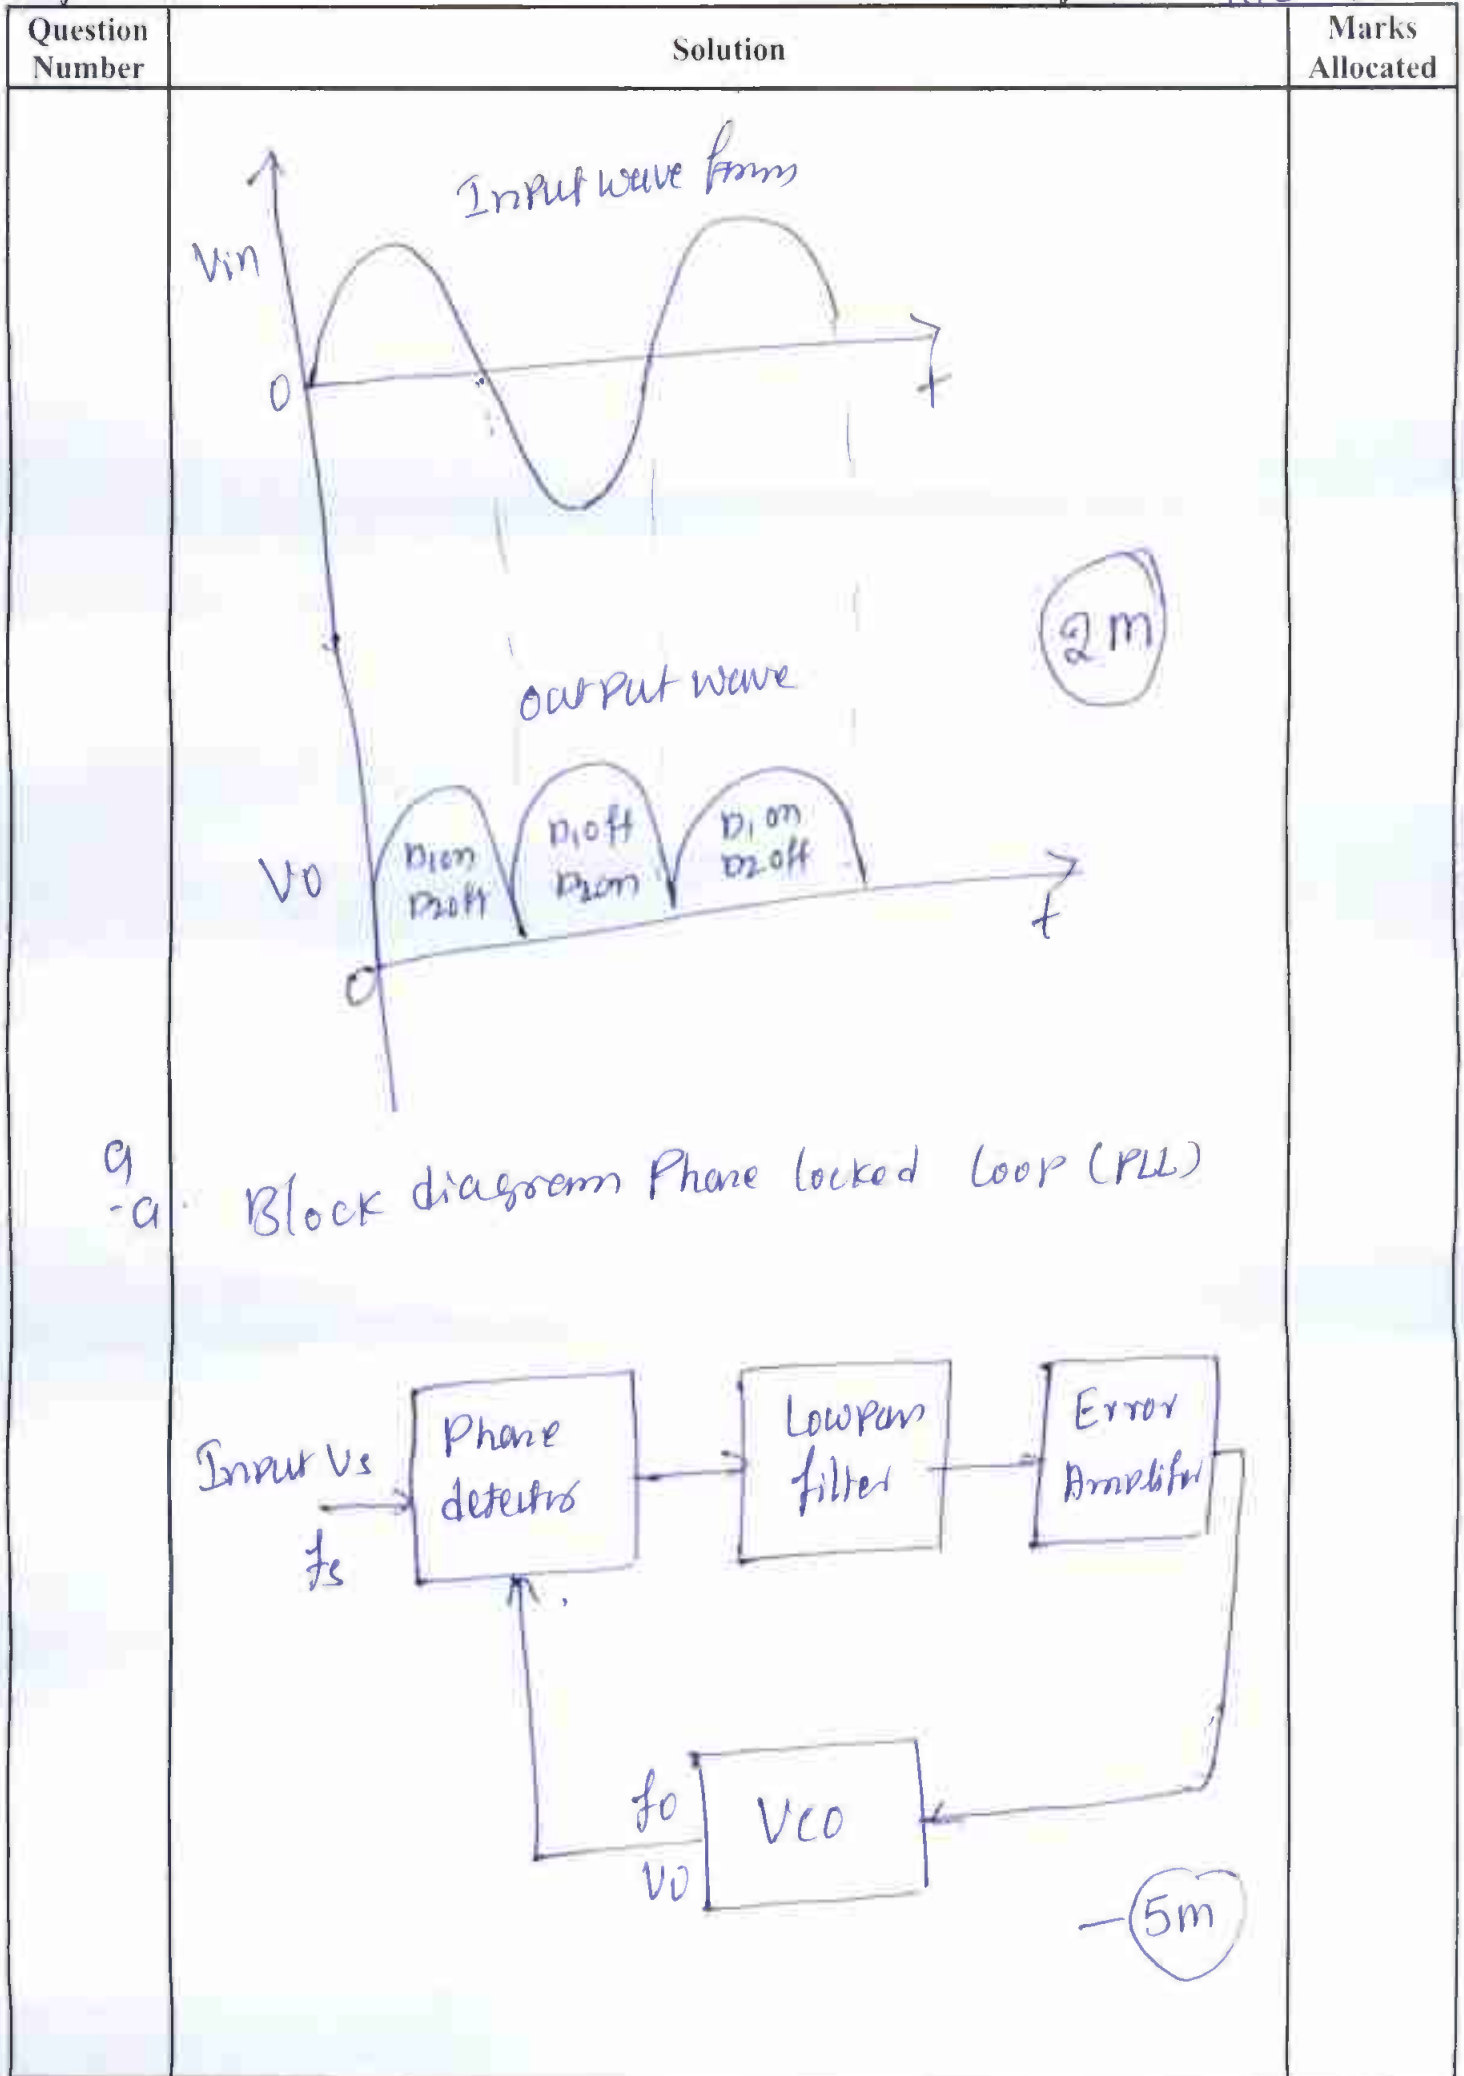 Question Number
Solution
Marks Allocated
Input wave forms
Vin
0
t
2m
output wave
V0
D1on D2off
D1off D2on
D1 on D2 off
t
0
9
-a. Block diagram Phase locked loop (PLL)
Input Vs
fs
Phase detector
Lowpass filter
Error Amplifer
f0
V0
VCO
-5m